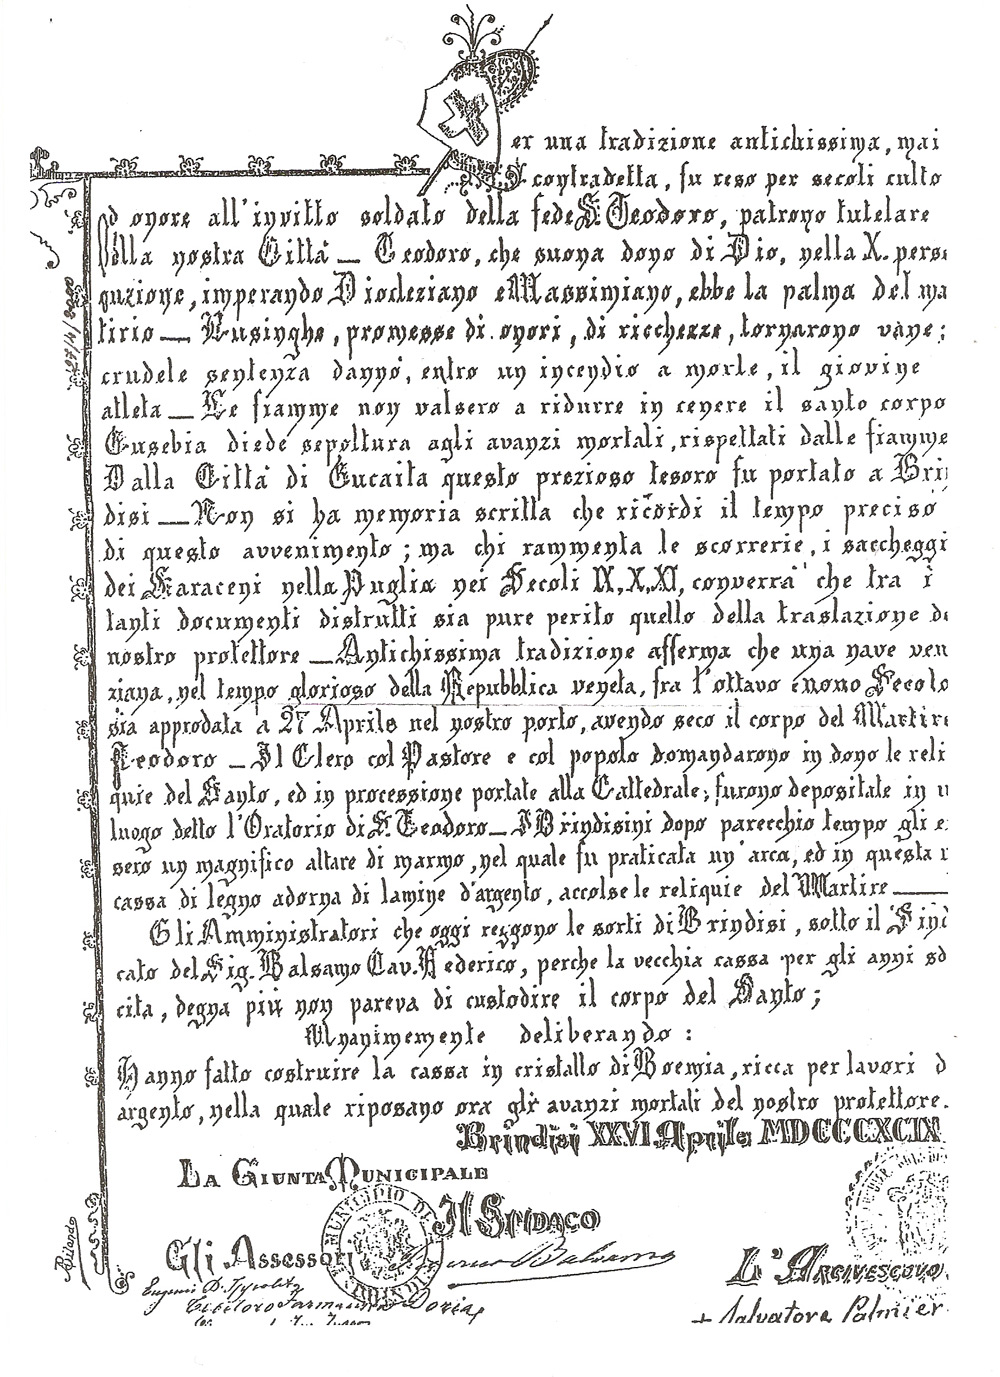 Per una tradizione antichissima, mai
contradetta, fu reso per secoli culto
d'onore all'invitto soldato della fede S. Teodoro, patrono tutelare
della nostra Città — Teodoro, che suona dono di Dio, nella X. perse
guzione, imperando Diocleziano e Massimiano, ebbe la palma del ma
tirio — Lusinghe, promesse di onori, di ricchezze, tornarono vane;
crudele sentenza dannò, entro un incendio a morte, il giovine
atleta — Le fiamme non valsero a ridurre in cenere il santo corpo
Eusebia diede sepoltura agli avanzi mortali, rispettati dalle fiamme
Dalla Città di Eucaita questo prezioso tesoro fu portato a Brin
disi — Non si ha memoria scritta che ricordi il tempo preciso
di questo avvenimento; ma chi rammenta le scorrerie, i saccheggi
dei Saraceni nella Puglia nei Secoli IX, X, XI, converrà che tra i
tanti documenti distrutti sia pure perito quello della traslazione de
nostro protettore — Antichissima tradizione afferma che una nave ven
ziana, nel tempo glorioso della Repubblica veneta, fra l'ottavo e nono Secolo
sia approdata a 27 Aprile nel nostro porto, avendo seco il corpo del Martire
Teodoro — Il Clero col Pastore e col popolo domandarono in dono le reli
quie del Santo, ed in processione portate alla Cattedrale; furono depositate in u
luogo detto l'Oratorio di S. Teodoro — I Brindisini dopo parecchio tempo gli e
sero un magnifico altare di marmo, nel quale fu praticata un'arca, ed in questa
cassa di legno adorna di lamine d'argento, accolse le reliquie del Martire —
Gli Amministratori che oggi reggono le sorti di Brindisi, sotto il Sind
cato del Sig. Balsamo Cav. Federico, perche la vecchia cassa per gli anni sd
cita, degna più non pareva di custodire il corpo del Santo;
Unanimemente deliberando:
Hanno fatto costruire la cassa in cristallo di Boemia, ricca per lavori d
argento, nella quale riposano ora gli avanzi mortali del nostro protettore.
Brindisi XXVI Aprile MDCCCXCIX
La Giunta Municipale
Il Sindaco
Balsamo
Gli Assessori
L'Arcivescovo
Eugenio
Teodoro Doria
+ Salvatore Palmier
MUNICIPIO DI